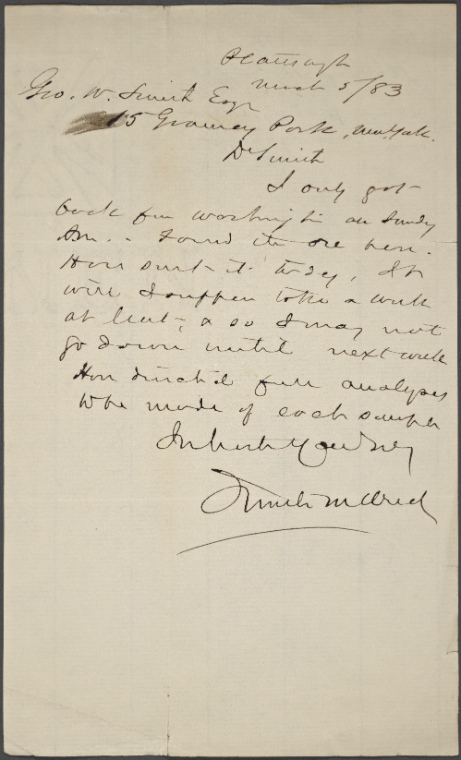 Plattsburgh
March 5/83
Geo. W. Smith Esqr
15 Gramercy Park, New York.
Dr Smith
I only got
back from Washington on Sunday
Am. Found the ore here.
Have sent it today, It
will I suppose take a week
at least, & so I may not
go down until next week
Have directed full analyses
to be made of each sample
In haste Yours truly
Smith M